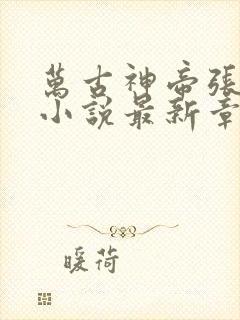 萬古神帝張
小說最新章
暖荷